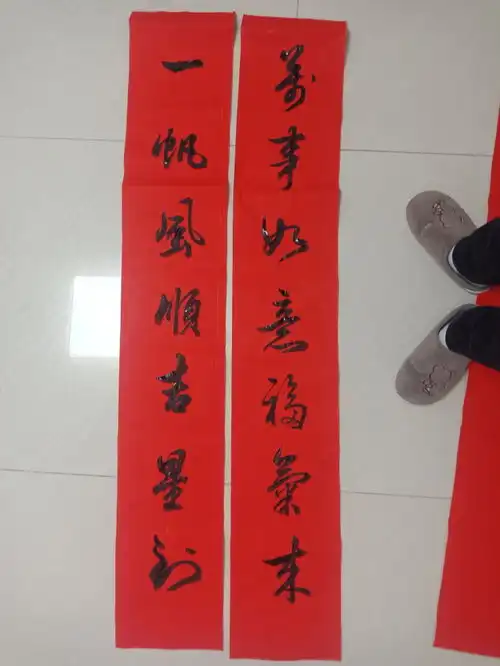 一帆風順吉星到
萬事如意福氣來